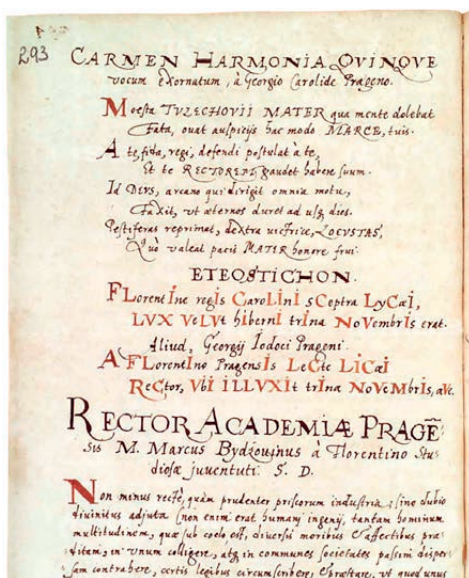 293
CARMEN HARMONIA QVINQVE
vocum exornatum, à Georgio Carolide Prageno.
Moesta TVRECHOVII MATER qua mente dolebat
Fata, ouat auspicijs hac modo MARCE, tuis.
A te, fida, regi, defendi postulat à te,
Et te RECTOREM, gaudet habere suum.
Id DEVS, arcano qui dirigit omnia motu,
Faxit, vt æternos duret ad usq dies.
Pestiferas reprimat, dextra victrice, LOCVSTAS,
Quò valeat pacis MATER honore frui.
ETEOSTICHON.
FLorentIne regIs CaroLInI sCeptra LyCæI,
LVX VeLVt hIbernI trIna NoVembrIs erat.
Aliud, Georgij Iodoci Prageni.
A FLorentIno PragensIs LeCte LICæI
ReCtor, VbI ILLVXIt trIna NoVeMbrIs, aVe.
RECTOR ACADEMIÆ PRAGĒ
sis M. Marcus Bydžouinus à Florentino Stu=
diosæ juuentuti S. D.
Non minus rectè, quàm prudenter priscorum industria, sine dubio
diuinitus adjuta (non enim erat humanj ingenij, tantam hominum
multitudinem, quæ sub coelo est, diuersis moribus & affectibus præ=
ditam, in vnum colligere, atq in communes societates passim disper=
sam contrahere, certis legibus circumscribere, & præstare, vt quod vnus